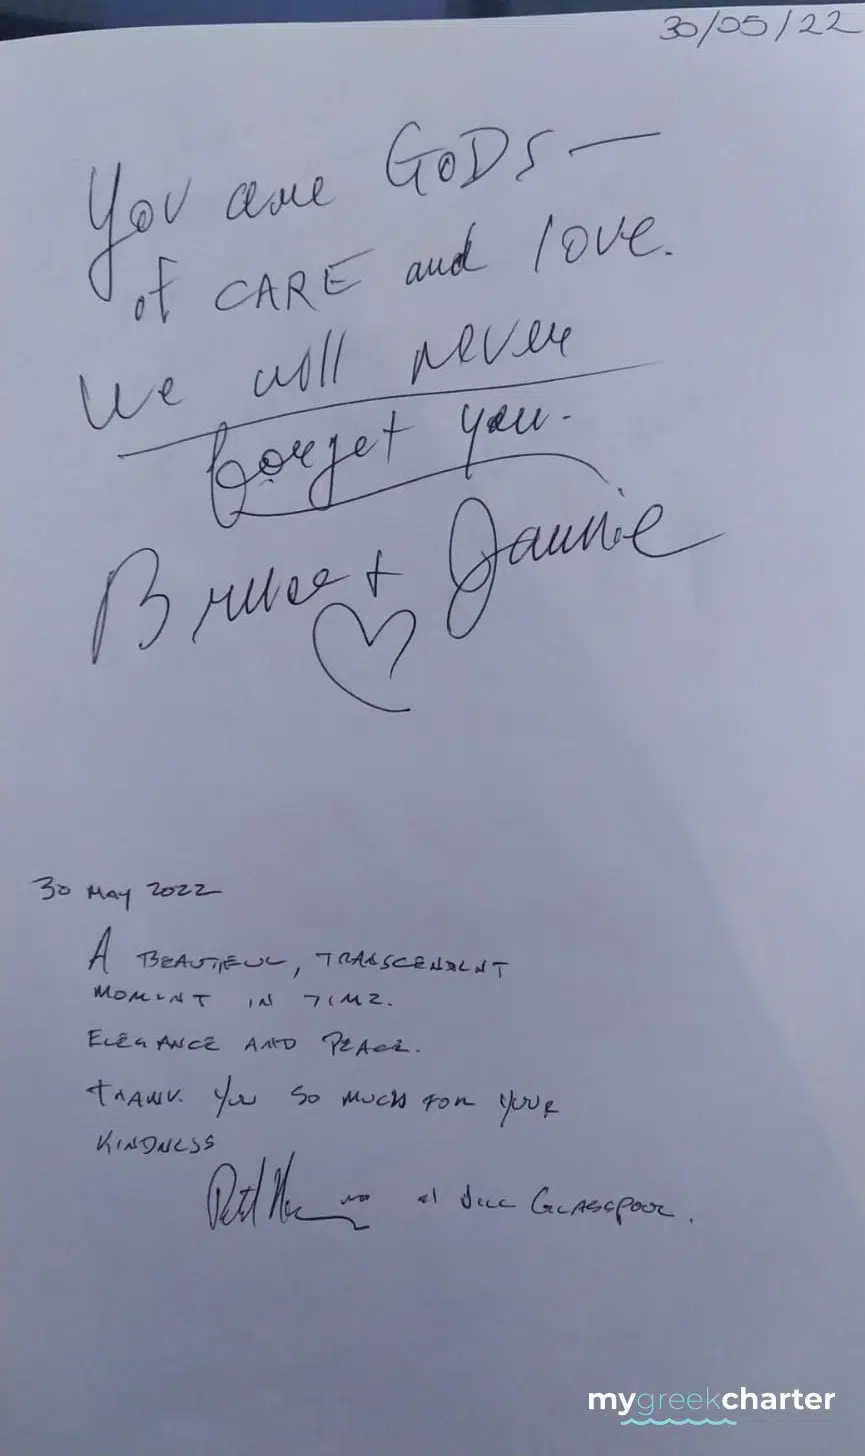 30/05/22
You are GODS —
of CARE and love.
We will never
forget you.
Bruce + Jannie
30 MAY 2022
A BEAUTIFUL, TRANSCENDENT
MOMENT IN TIME.
ELEGANCE AND PEACE.
THANK YOU SO MUCH FOR YOUR
KINDNESS
GLASSPOOL.
mygreekcharter